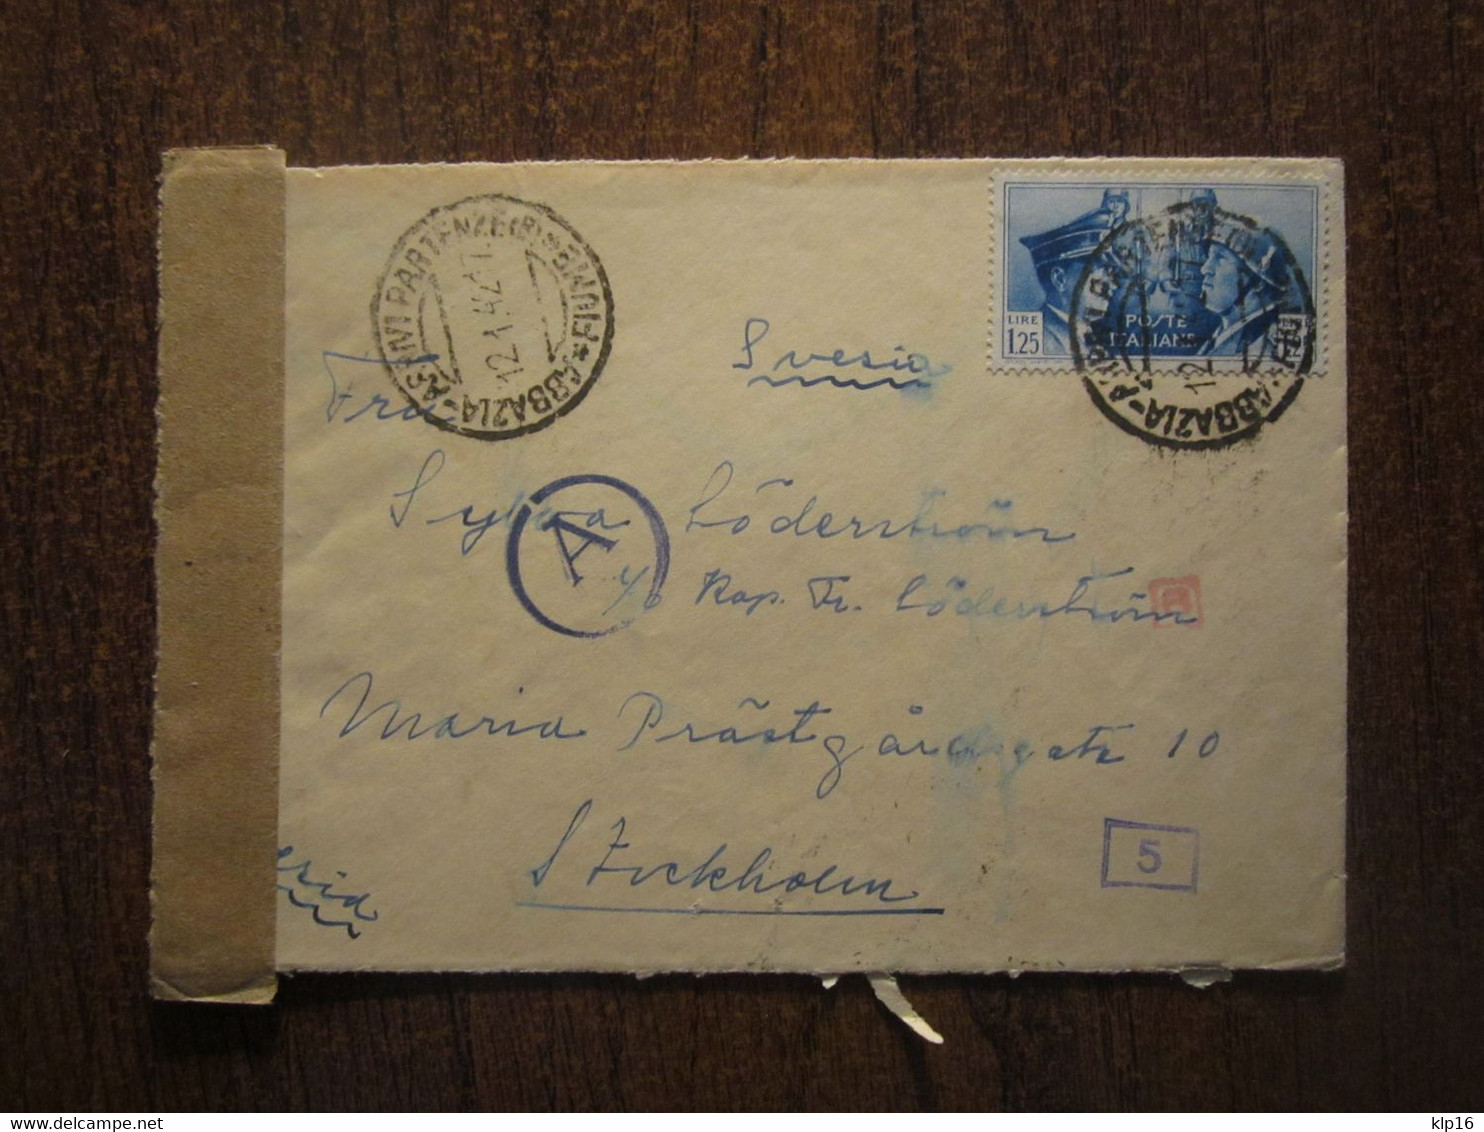 ABBAZIA - ARRIVI PARTENZE (R) * FIUME *
12.1.42
LIRE
1.25
POSTE
ITALIANE
ABBAZIA
12
Svesia
Fru
Sylvia Söderström
A
c/o Kap. Fr. Söderström
Maria Prästgårdsgata 10
Stockholm
5
klp16